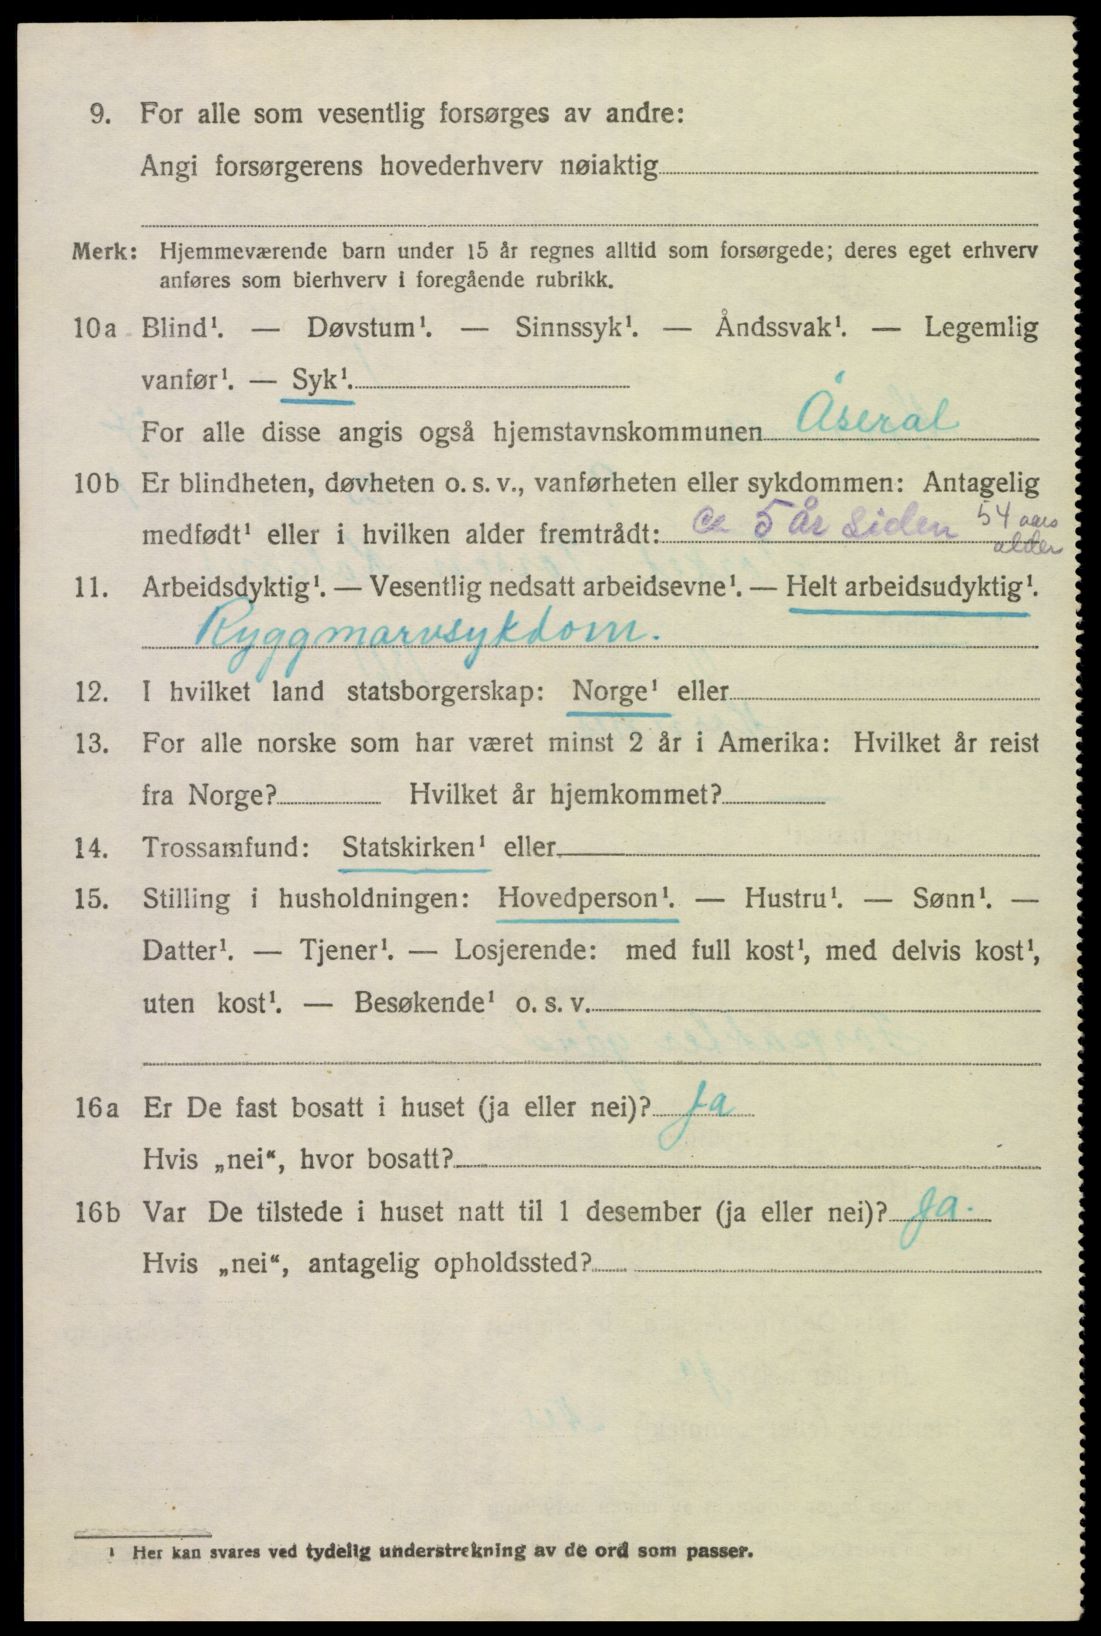 9. For alle som vesentlig forsørges av andre:
Angi forsørgerens hovederhverv nøiaktig
Merk: Hjemmeværende barn under 15 år regnes alltid som forsørgede; deres eget erhverv
anføres som bierhverv i foregående rubrikk.
10a Blind¹. — Døvstum¹. — Sinnssyk¹. — Åndssvak¹. — Legemlig
vanfør¹. — Syk¹.
For alle disse angis også hjemstavnskommunen Åseral
10b Er blindheten, døvheten o. s. v., vanførheten eller sykdommen: Antagelig
medfødt¹ eller i hvilken alder fremtrådt: ca 5 år siden 54 aars
alder
11. Arbeidsdyktig¹. — Vesentlig nedsatt arbeidsevne¹. — Helt arbeidsudyktig¹.
Ryggmarvsykdom.
12. I hvilket land statsborgerskap: Norge¹ eller
13. For alle norske som har været minst 2 år i Amerika: Hvilket år reist
fra Norge? Hvilket år hjemkommet?
14. Trossamfund: Statskirken¹ eller
15. Stilling i husholdningen: Hovedperson¹. — Hustru¹. — Sønn¹. —
Datter¹. — Tjener¹. — Losjerende: med full kost¹, med delvis kost¹,
uten kost¹. — Besøkende¹ o. s. v.
16a Er De fast bosatt i huset (ja eller nei)? Ja
Hvis „nei“, hvor bosatt?
16b Var De tilstede i huset natt til 1 desember (ja eller nei)? Ja.
Hvis „nei“, antagelig opholdssted?
¹ Her kan svares ved tydelig understrekning av de ord som passer.